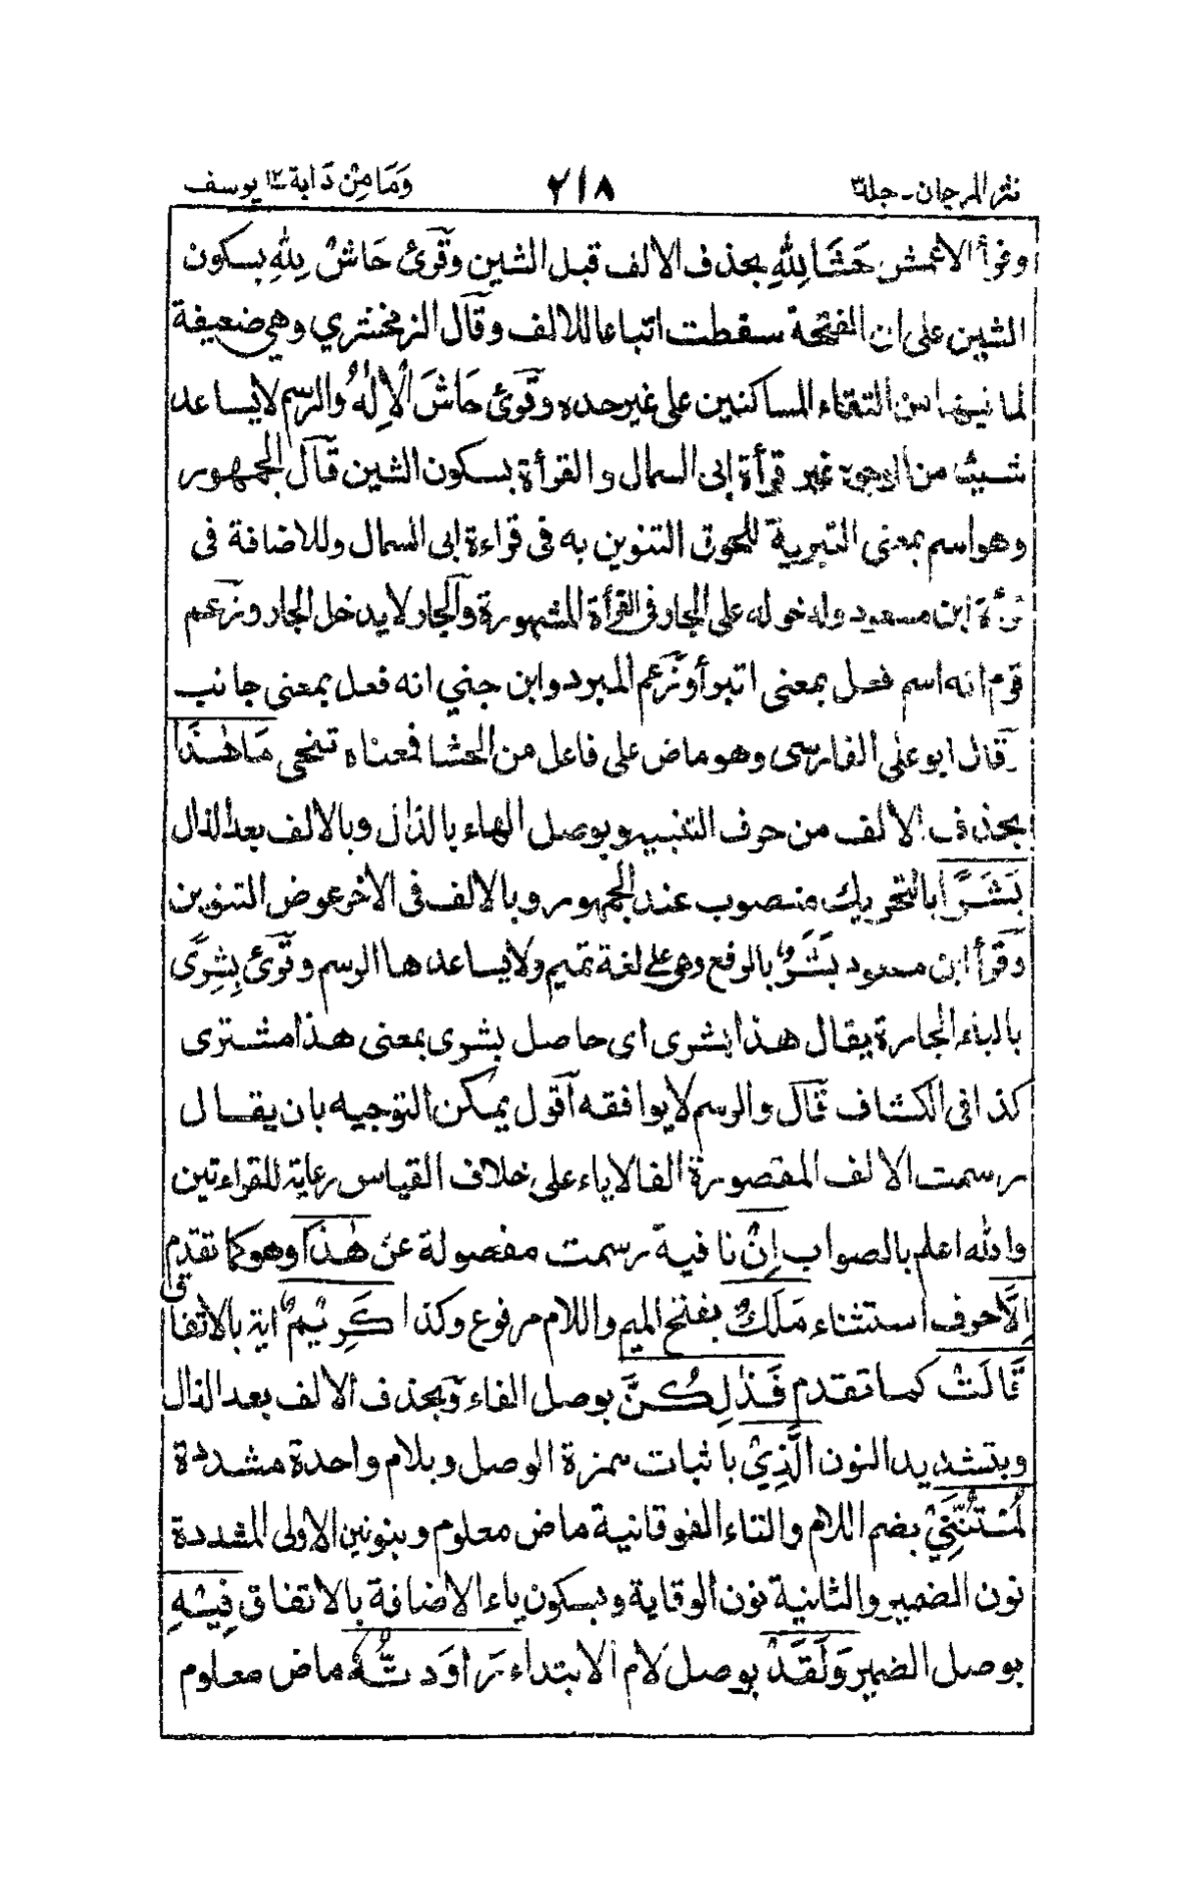 نثر المرجان - جلد٣ ٢١٨ وَمَا مِنْ دَابة ١٢ يوسف
وقرأ الاعمش حَشَا لِلّٰهِ بحذف الالف قبل الشين وقُرئ حَاشْ لِلّٰهِ بسكون
الشين على ان الفتحة سقطت اتباعا للالف وقال الزمخشري وهي ضعيفة
لما فيها من التقاء الساكنين على غير حده وقرئ حَاشَ الْاِلٰهُ والرسم لا يساعد
شيئ من الوجوه غير قرأة ابى السمال و القرأة بسكون الشين قال الجمهور
وهو اسم بمعنى التبرية للحوق التنوين به فى قراءة ابى السمال وللاضافة فى
قرأة ابن مسعود ولدخوله على الجار فى القرأة المشهورة والجار لا يدخل الجار وزعم
قوم انه اسم فعل بمعنى اتبرأ وزعم المبرد وابن جني انه فعل بمعنى جانب
قال ابو على الفارسى وهو ماض على فاعل من الحشا فمعناه تنحى مَا هٰذَا
بحذف الالف من حرف التنبيه وبوصل الهاء بالذال وبالالف بعد الذال
بَشَرًا بالتحريك منصوب عند الجمهور وبالالف فى الاخر عوض التنوين
وقرأ ابن مسعود بَشَرٌ بالرفع وهو على لغة تميم ولا يساعدها الرسم وقرئ بِشِرًى
بالباء الجارة يقال هذا بشرى اى حاصل بشرى بمعنى هذا مشترى
كذا فى الكشاف قال والرسم لا يوافقه اقول يمكن التوجيه بان يقال
رسمت الالف المقصورة الفا لاياء على خلاف القياس رعاية للقراءتين
والله اعلم بالصواب اِنْ نافية رسمت مفصولة عن هٰذَا وهو كما تقدم
اِلَّا حرف استثناء مَلَكٌ بفتح الميم واللام مرفوع وكذا كَرِيْمٌ اية بالاتفاق
قَالَتْ كما تقدم فَذٰلِكُنَّ بوصل الفاء وبحذف الالف بعد الذال
وبتشديد النون الَّذِيْ باثبات همزة الوصل وبلام واحدة مشددة
لُمْتُنَّنِيْ بضم اللام والتاء الفوقانية ماض معلوم وبنونين الاولى المشددة
نون الضمير والثانية نون الوقاية وبسكون ياء الاضافة بالاتفاق فِيْهِ
بوصل الضمير وَلَقَدْ بوصل لام الابتداء رَاوَدتُّهُ ماض معلوم